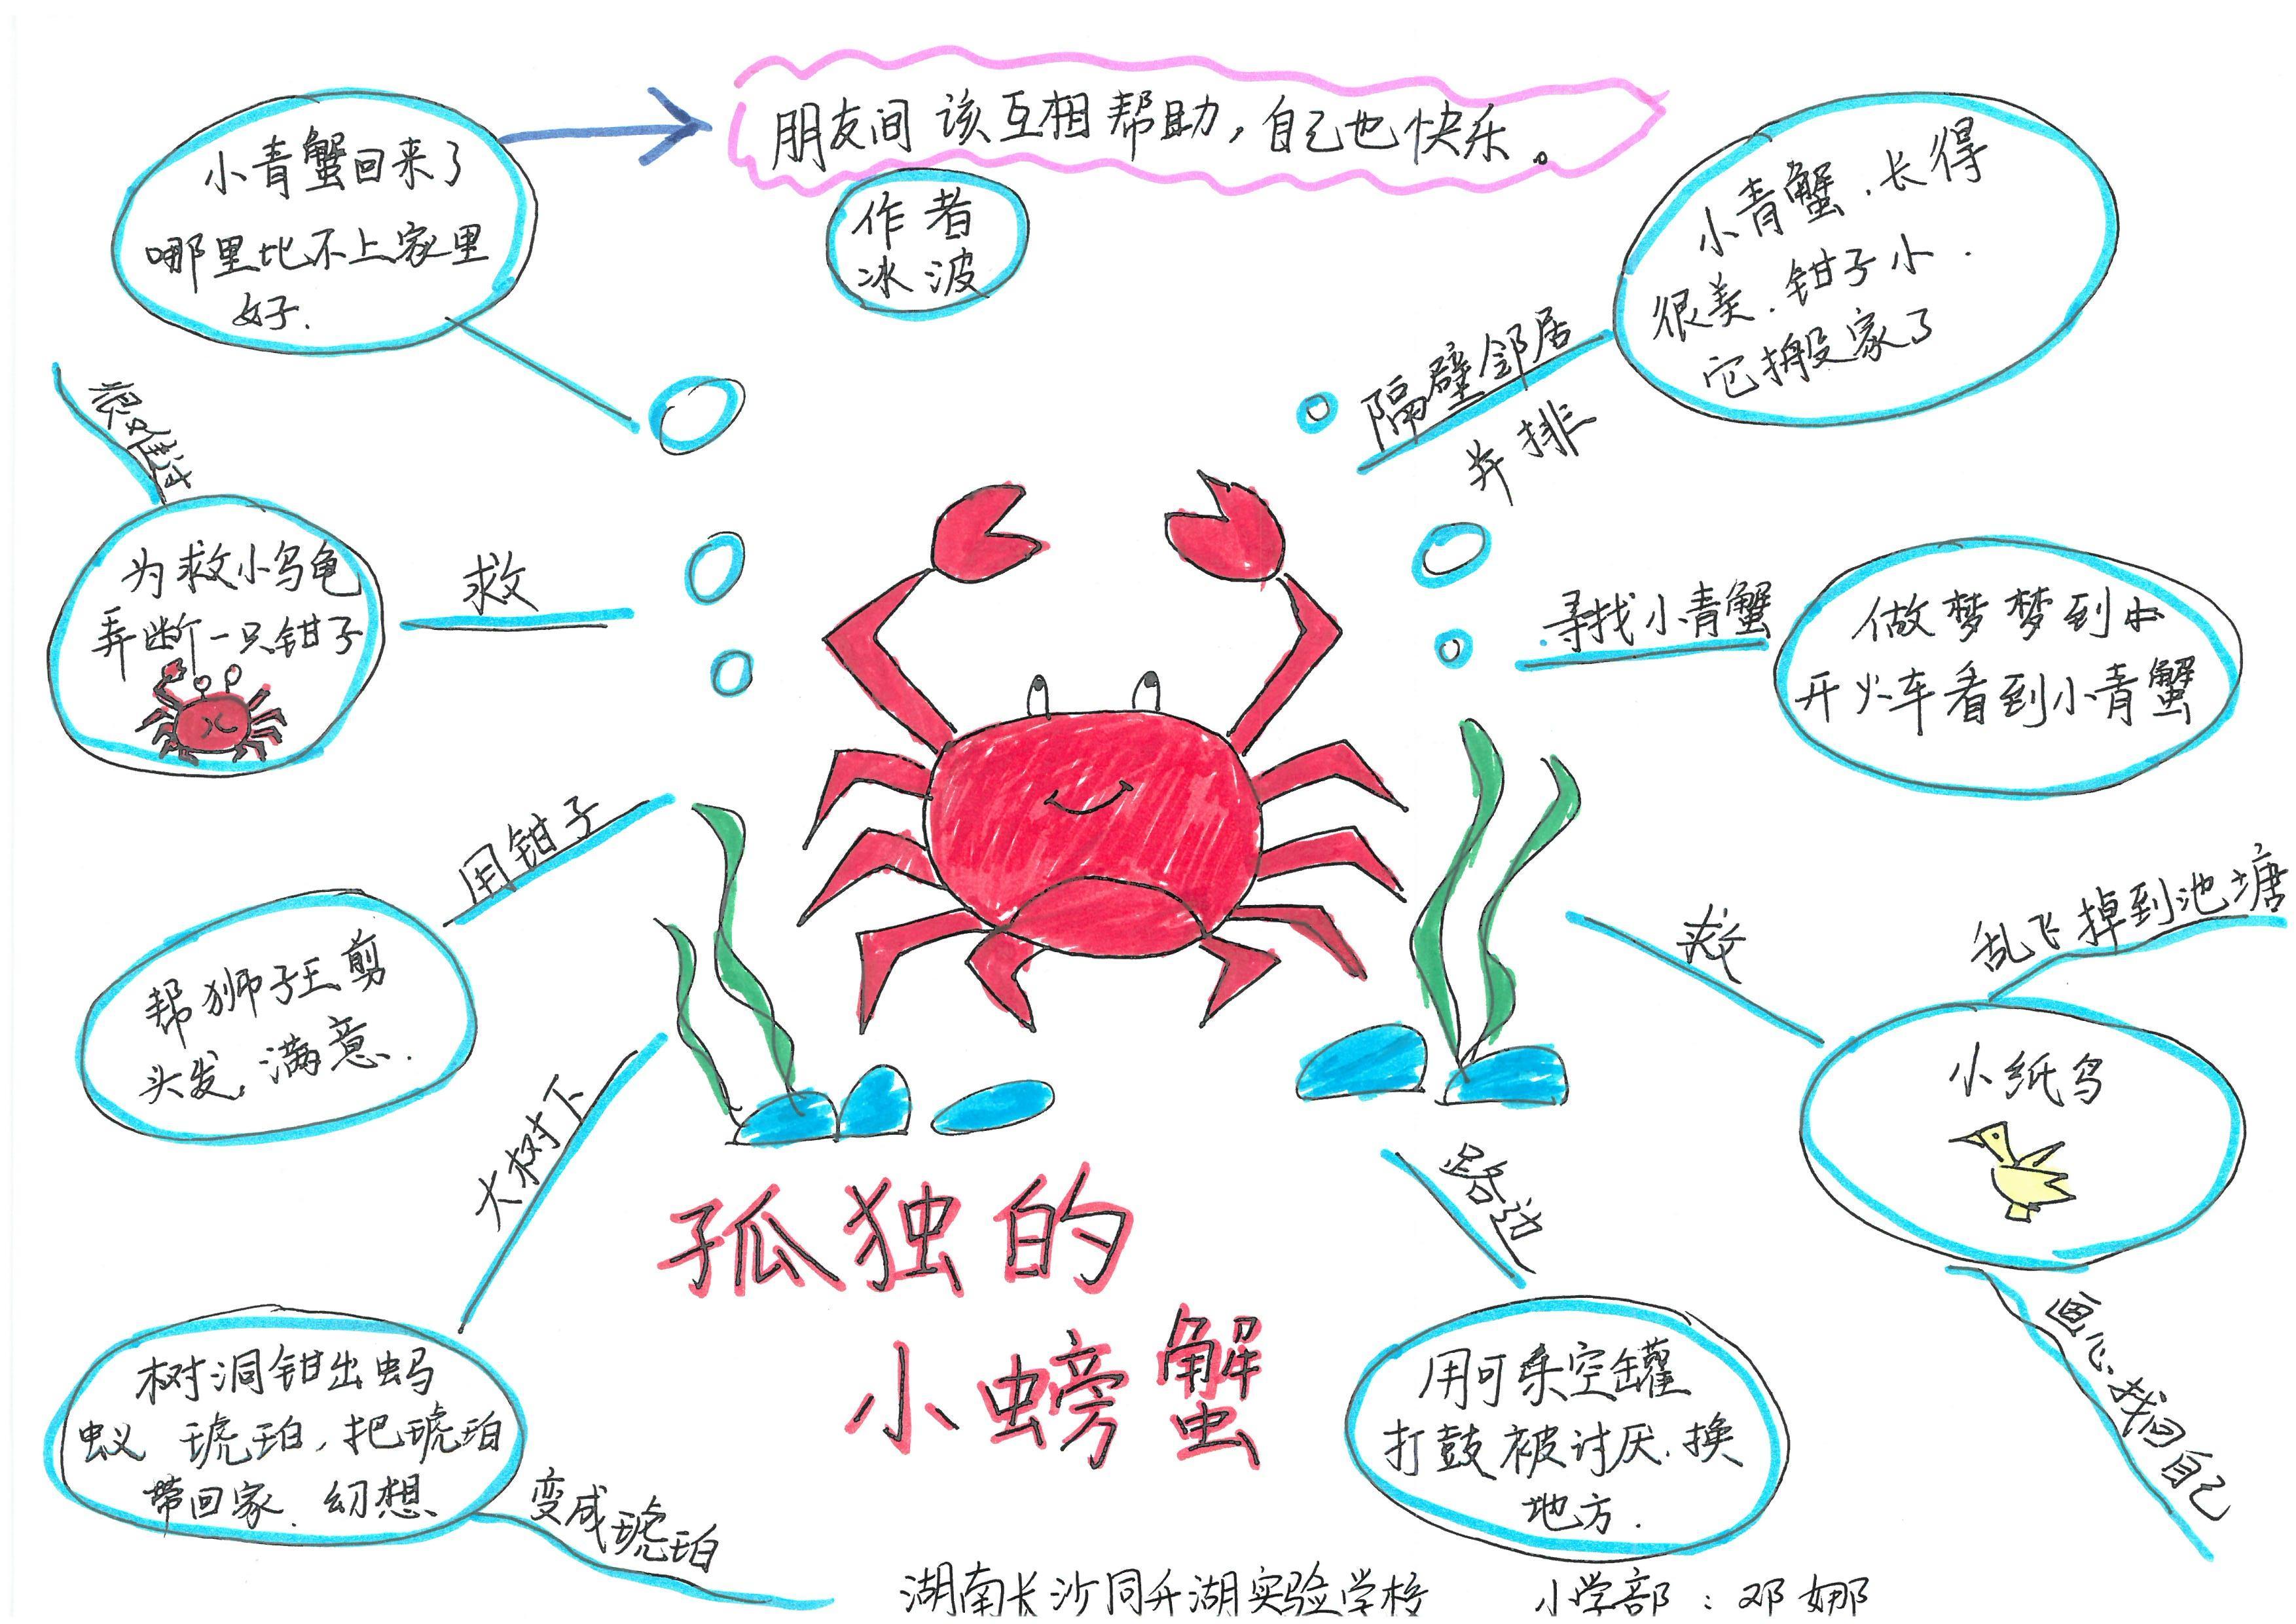 朋友间该互相帮助,自己也快乐。
作者
冰波
小青蟹.长得
很美.钳子小.
它搬家了
隔壁邻居
并排
寻找小青蟹
做梦梦到
开火车看到小青蟹
救
乱飞掉到池塘
小纸鸟
画飞,找回自己
路边
用可乐空罐
打鼓被讨厌.换
地方.
孤独的
小螃蟹
大树下
树洞钳出蚂
蚁 琥珀,把琥珀
带回家.幻想
变成琥珀
用钳子
帮狮子王剪
头发,满意.
救
为救小乌龟
弄断一只钳子
很难过
小青蟹回来了
哪里比不上家里
好.
湖南长沙同升湖实验学校 小学部:邓娜